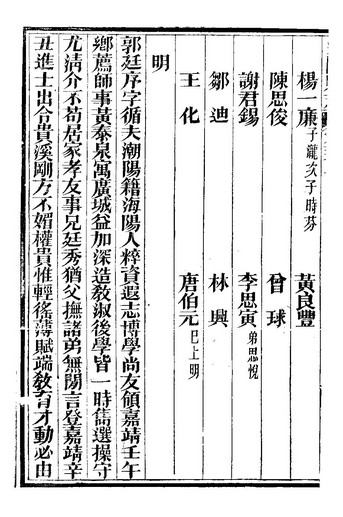 楊一廉子瀧次子時芬　黃良豐
陳思俊　曾球
謝君錫　李思寅弟思悅
鄒迪　林興
王化　唐伯元巳上明
明
郭廷序字循夫潮陽籍海陽人粹資遐志博學尚友領嘉靖壬午
鄉薦師事黃泰泉寓廣城益加深造敎淑後學皆一時雋選操守
尤淸介不苟居家孝友事兄廷秀猶父撫諸弟無閒言登嘉靖辛
丑進士出令貴溪剛方不媚權貴惟輕徭薄賦端敎育才動必由